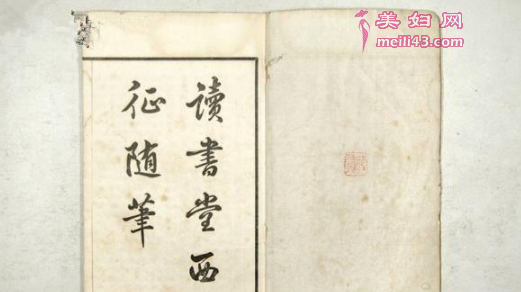 讀書堂西
征随筆
美妇网
meili43.com